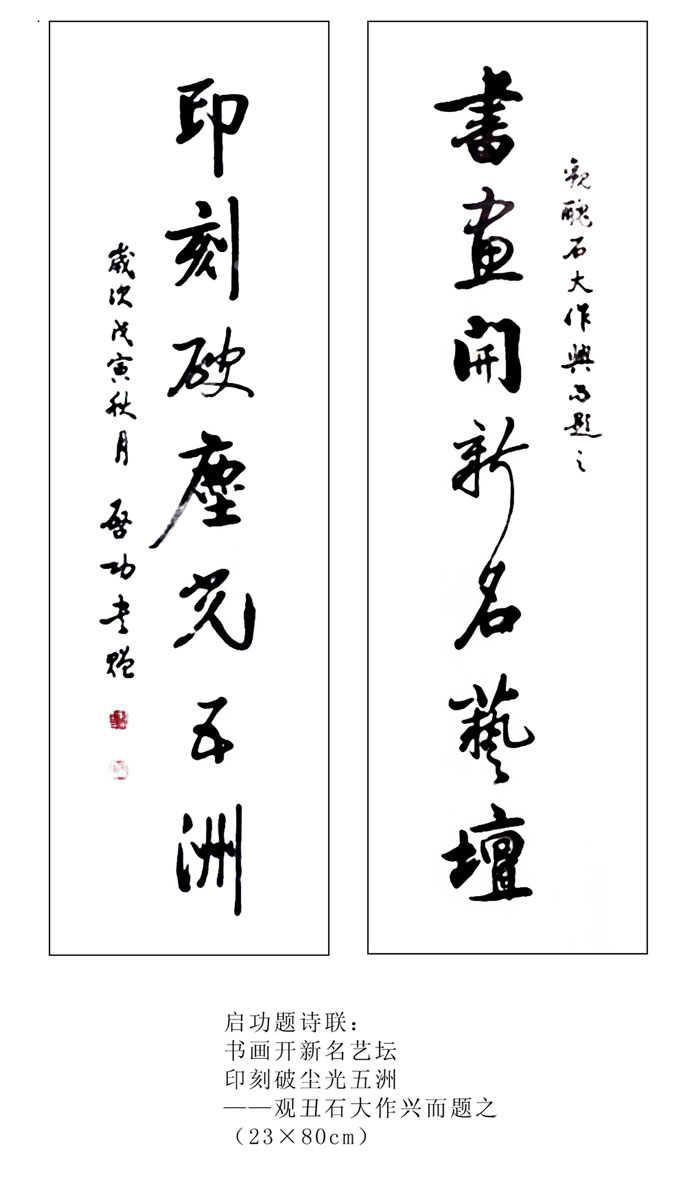 觀醜石大作興而題之
書畫開新名藝壇
印刻破塵光五洲
歲次戊寅秋月 啓功書題
启功题诗联：
书画开新名艺坛
印刻破尘光五洲
——观丑石大作兴而题之
（23×80cm）